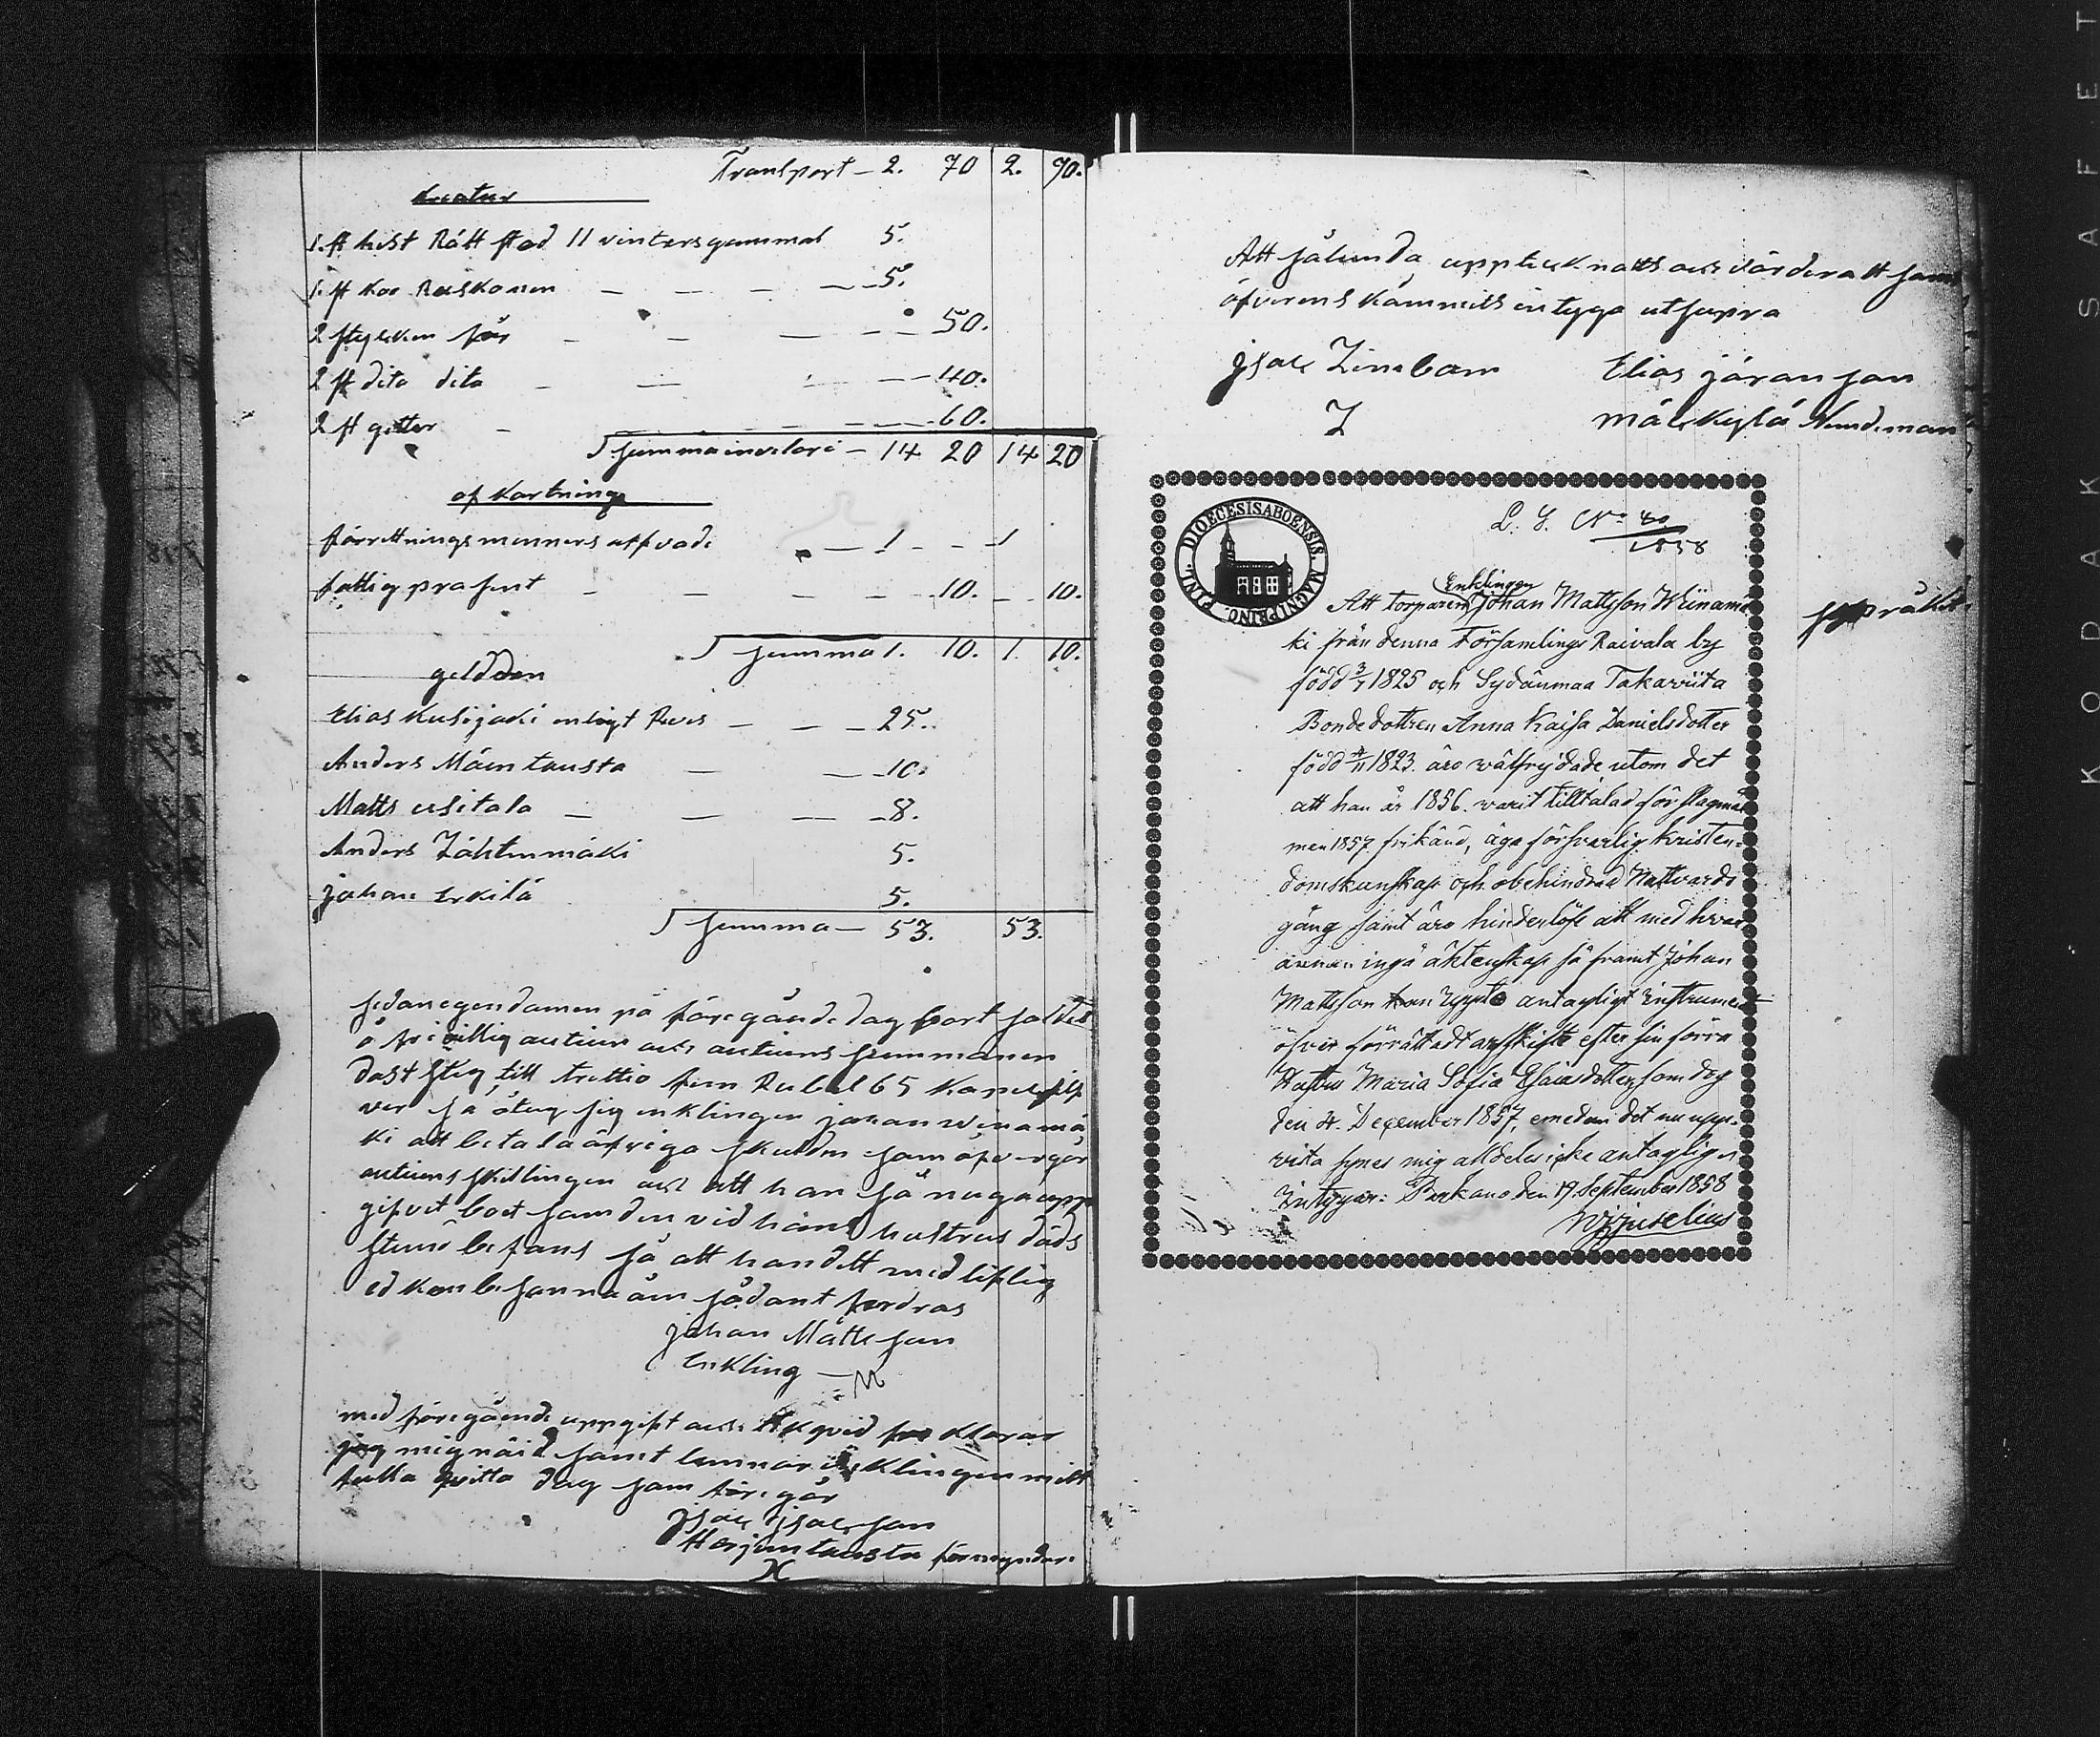 Transport – 2. 70 2. 90.
Kreatur
1 st hest Rått stod 11 vinters gammal 5.
1 st Koo Ruskonen – – – – 5.
2 stycken får – – – – 50.
2 st dito dito – – – – 40.
2 st getter – – – 60.
Summa inveteri – 14 20 14 20
af Kortning
förrettnings menners arfvode – 1 – – 1
fattig prosent – – – – 10. – 10.
Summa 1. 10. 1. 10.
geldden
Elias Kusijoki enligt Revers – – – 25.
Anders Mäentausta – – 10.
Matts usitalo – – – 8.
Anders Lähtenmäki 5.
johan Erkilä 5.
Summa – 53. 53.
sedan egendomen på föregånde dag bort soldes
å fri villig auction och auctions summanen
dast steg till trettio fem Rubel 65 Kopek silf
ver så åtog sig enklingen johan winamä
ki att betala öfriga skulden som öfvergår
auctions skillingen och att han så noga upp
gifvet boet som den vid hans hustrus döds
stund befans så att han dett med liflig
ed kan besanna åm sådant fordras
Johan Matts son
Enkling – M
med föregående uppgift och förklarar
jag mig nöid samt lemnar enklingen mitt
fulla qvitto dag som föregår
jsac jsacsson
Harjuntausta förmyndare
X
Att sålunda upptecknatts och värderatt som
öfverens kåmmits intyga ut supra
jsac Linbom Elias jöransson
L Mäckylä Nemdeman
DIOECESIS ABOENSIS. MAGNI PRINC. FINL.
L. S. No 40
1858
Enklingen
Att torparen Johan Mattsson Wiinamä
ki från denna Församlings Raivala by
född 3/7 1825 och Sydänmaa Takaviita
Bondedottren Anna Kaisa Danielsdotter
född 4/11 1823. äro välfrejdade utom det
att han år 1856. varit tilltalad för slagmål
men 1857 frikänd, äga försvarlig kristen-
domskunskap och obehindrad Nattvards
gång samt äro hinderlöse att med hvar
annan ingå äktenskap så framt Johan
Mattsson antagligt instrument
öfver förrättadt arfskifte efter sin förra
Hustru Maria Sofia Esaiasdotter som dog
den 4. December 1857, emedan det nu upp-
vista synes mig alldeles icke antagligt
Intygar: Parkano den 19 September 1858